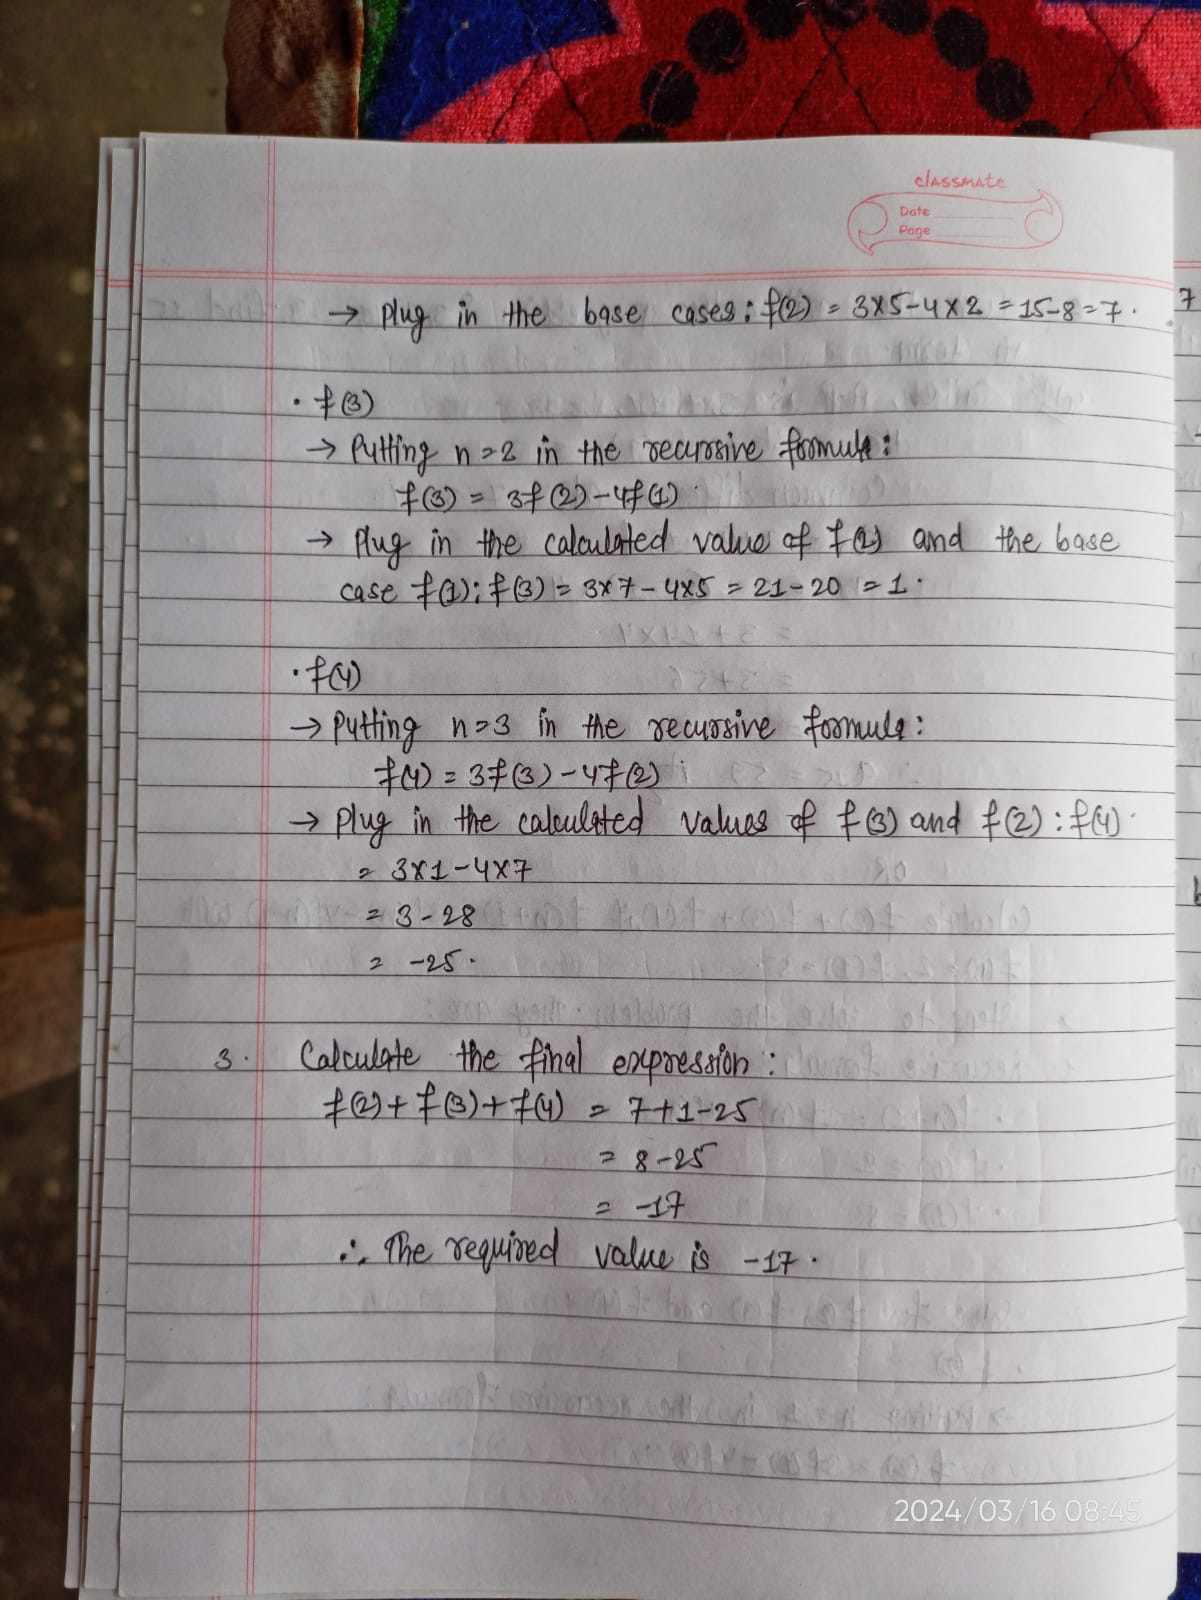 classmate
Date
Page
→ Plug in the base cases: f(2) = 3×5-4×2 = 15-8=7.
7
• f(3)
→ Putting n=2 in the recursive formula:
f(3) = 3f(2)-4f(1)
→ Plug in the calculated value of f(2) and the base
case f(1): f(3) = 3×7-4×5 = 21-20 = 1.
• f(4)
→ Putting n=3 in the recursive formula:
f(4) = 3f(3)-4f(2)
→ Plug in the calculated values of f(3) and f(2): f(4)
= 3×1-4×7
= 3-28
= -25.
3. Calculate the final expression:
f(2)+f(3)+f(4) = 7+1-25
= 8-25
= -17
∴ The required value is -17.
2024/03/16 08:45